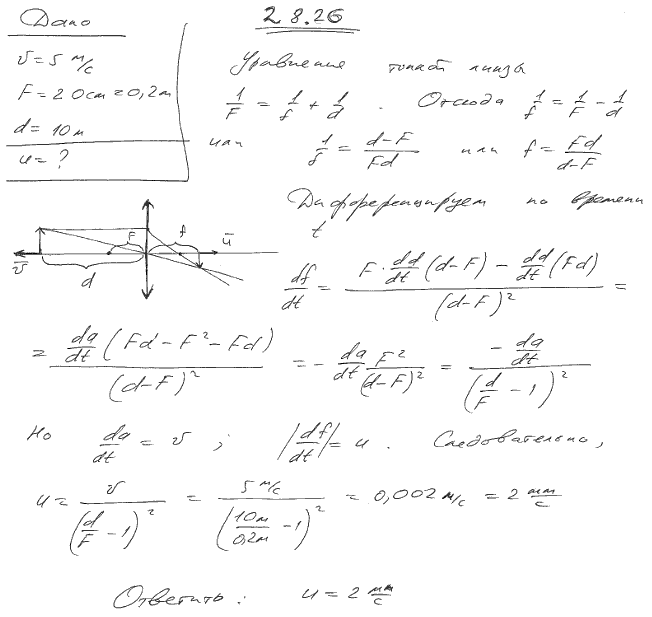 28.26
Дано
v = 5 м/с
F = 20см = 0,2м
d = 10м
u = ?
Уравнение тонкой линзы
1/F = 1/f + 1/d . Отсюда 1/f = 1/F − 1/d
или 1/f = (d−F)/(Fd) или f = Fd/(d−F)
Дифференцируем по времени
t
F f u
v d
df/dt = (F · dd/dt (d−F) − dd/dt (Fd))/(d−F)² =
= (dd/dt (Fd − F² − Fd))/(d−F)² = − dd/dt F²/(d−F)² = (− dd/dt)/(d/F − 1)²
Но dd/dt = v ; |df/dt| = u . Следовательно,
u = v/(d/F − 1)² = (5 м/с)/(10м/0,2м − 1)² = 0,002 м/с = 2 мм/с
Ответить : u = 2 мм/с